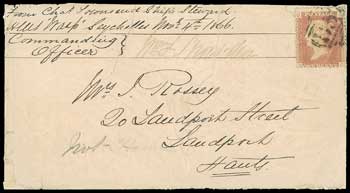 From Chas Townsend Ship's Steward
HMS Wasp Seychelles Nov. 4th 1866.
Commanding
Officer
Mrs J. Rossey
20 Landport Street
Landport
Hants